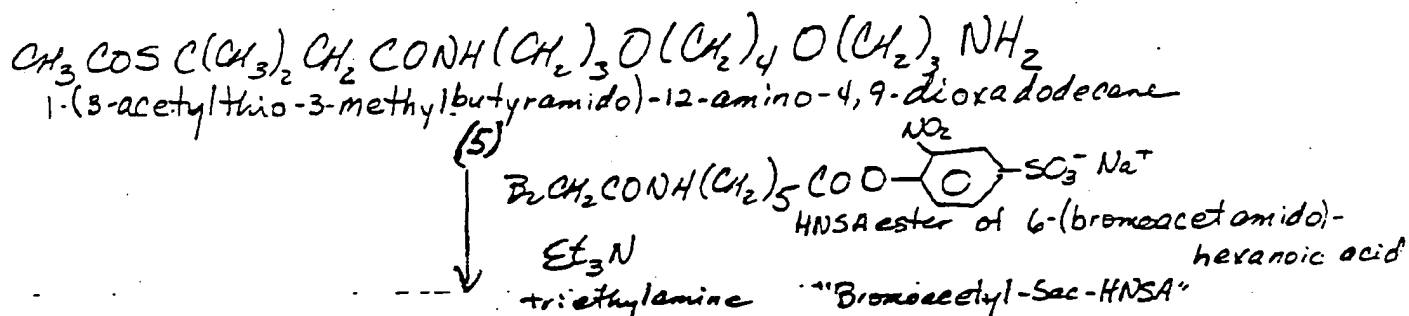 CH3COSC(CH3)2CH2CONH(CH2)3O(CH2)4O(CH2)3NH2
1-(3-acetylthio-3-methylbutyramido)-12-amino-4,9-dioxadodecane
(5)
NO2
BrCH2CONH(CH2)5COO-
-SO3- Na+
HNSA ester of 6-(bromoacetamido)-
hexanoic acid
Et3N
triethylamine
"Bromoacetyl-Sac-HNSA"